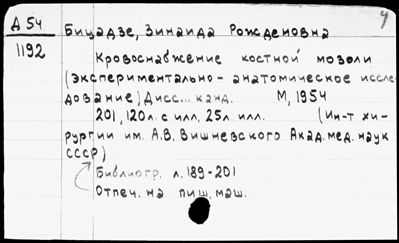 Д 54 Бицадзе, Зинаида Рожденовна
1192
Кровоснабжение костной мозоли
(экспериментально-анатомическое иссле-
дование) Дисс... канд. М, 1954
201, 120 л. с илл, 25 л. илл. (Ин-т хи-
рургии им. А.В. Вишневского Акад. мед. наук
СССР)
Библиогр. л. 189-201
Отпеч. на пиш. маш.